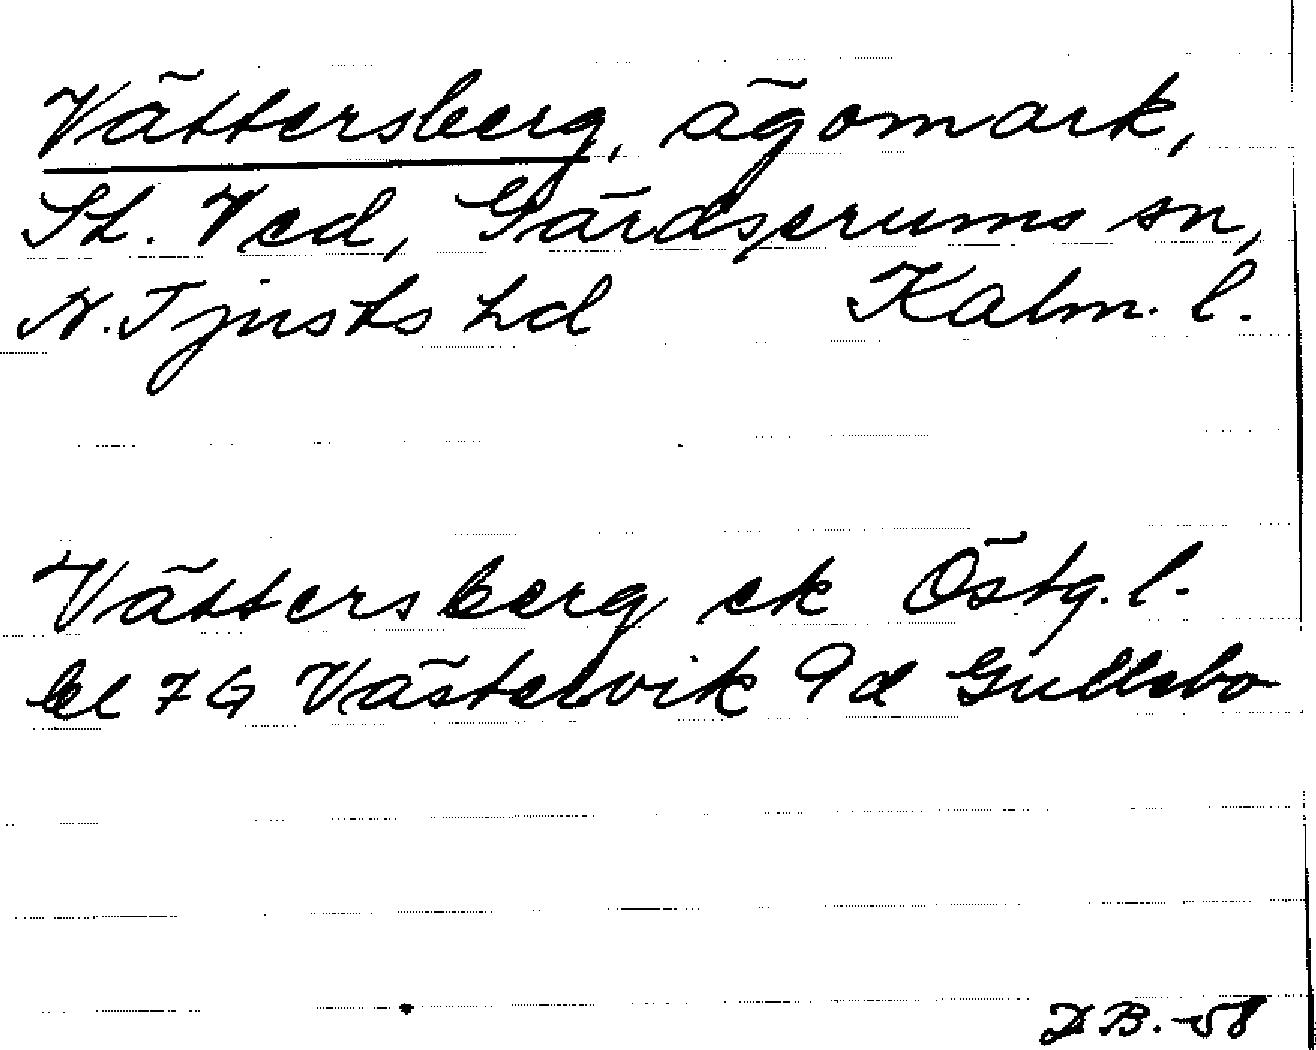 Vättersberg, ägomark,
St. Ved, Gärdserums sn,
N. Tjusts hd Kalm. l.
Vättersberg ek Östg. l.
bl 7 G Västervik 9d Gullebo
D.B. -58